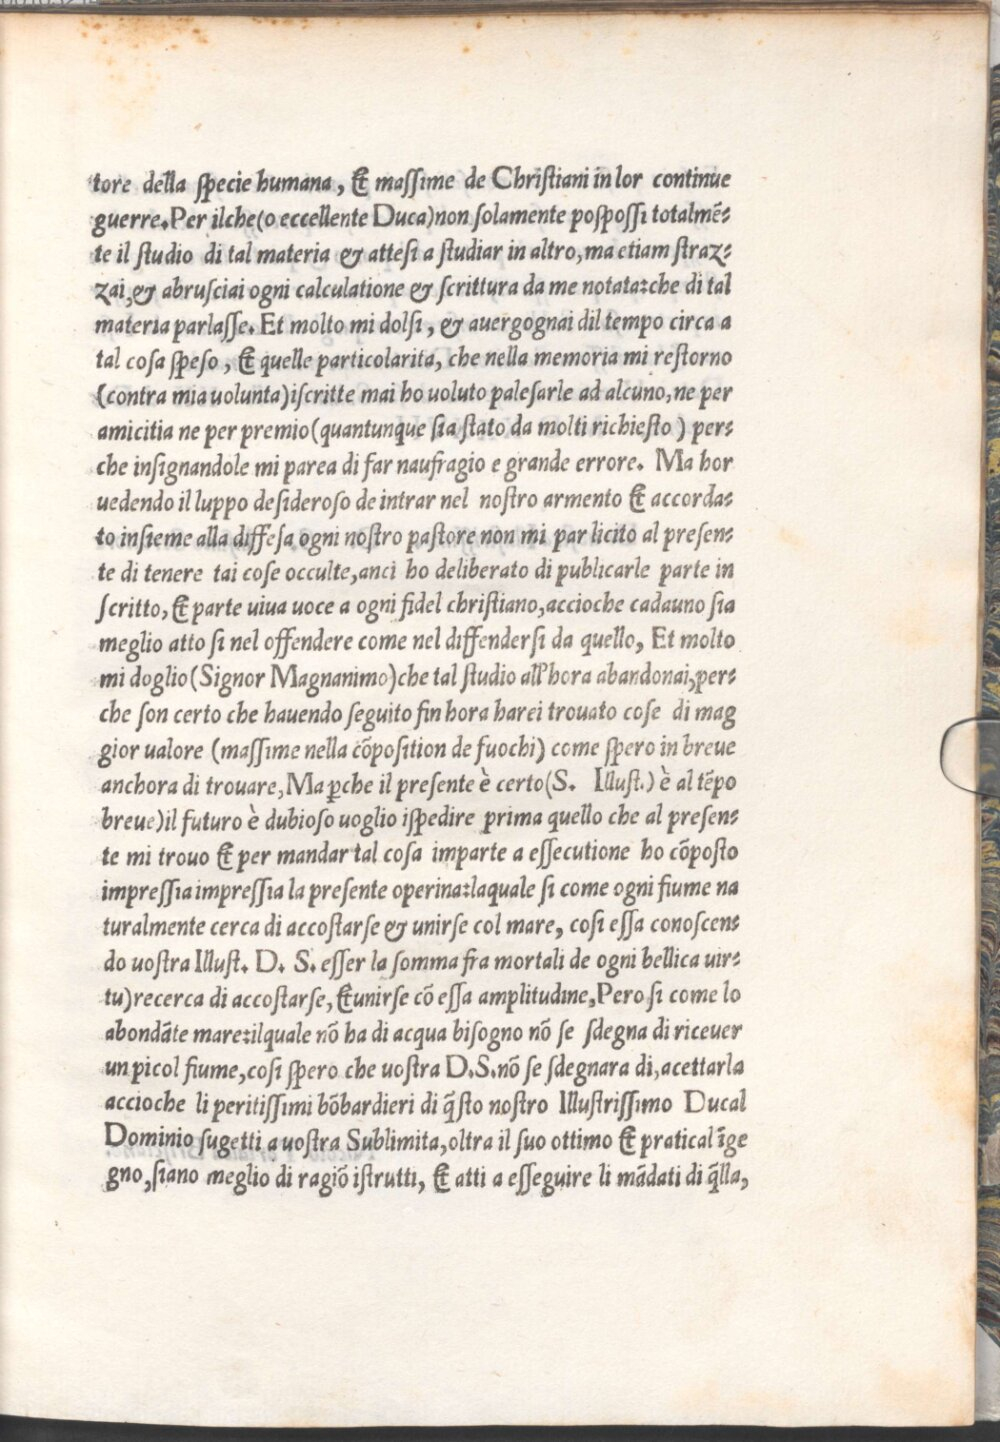 tore della ſpecie humana, & maſſime de Chriſtiani in lor continue
guerre. Per ilche (o eccellente Duca) non ſolamente poſpoſſi totalmē⸗
te il ſtudio di tal materia & atteſi a ſtudiar in altro, ma etiam ſtraz⸗
zai, & abruſciai ogni calculatione & ſcrittura da me notata: che di tal
materia parlaſſe. Et molto mi dolſi, & auergognai dil tempo circa a
tal coſa ſpeſo, & quelle particolarita, che nella memoria mi reſtorno
(contra mia uolunta) iſcritte mai ho uoluto paleſarle ad alcuno, ne per
amicitia ne per premio (quantunque ſia ſtato da molti richieſto) per⸗
che inſignandole mi parea di far naufragio e grande errore. Ma hor
uedendo il luppo deſideroſo de intrar nel noſtro armento & accorda⸗
to inſieme alla diffeſa ogni noſtro paſtore non mi par licito al preſen⸗
te di tenere tai coſe occulte, anci ho deliberato di publicarle parte in
ſcritto, & parte uiua uoce a ogni fidel chriſtiano, accioche cadauno ſia
meglio atto ſi nel offendere come nel diffenderſi da quello, Et molto
mi doglio (Signor Magnanimo) che tal ſtudio all'hora abandonai, per⸗
che ſon certo che hauendo ſeguito fin hora harei trouato coſe di mag
gior ualore (maſſime nella cōpoſition de fuochi) come ſpero in breue
anchora di trouare, Ma ꝑche il preſente è certo (S. Illuſt.) è al tēpo
breue) il futuro è dubioſo uoglio iſpedire prima quello che al preſen⸗
te mi trouo & per mandar tal coſa imparte a eſſecutione ho cōpoſto
impreſſia impreſſia la preſente operina: laquale ſi come ogni fiume na
turalmente cerca di accoſtarſe & unirſe col mare, coſi eſſa conoſcen⸗
do uoſtra Illuſt. D. S. eſſer la ſomma fra mortali de ogni bellica uir⸗
tu) recerca di accoſtarſe, & unirſe cō eſſa amplitudine, Pero ſi come lo
abondāte mare: ilquale nō ha di acqua biſogno nō ſe ſdegna di riceuer
un picol fiume, coſi ſpero che uoſtra D. S. nō ſe ſdegnara di, acettarla
accioche li peritiſſimi bōbardieri di q̄ſto noſtro Illuſtriſſimo Ducal
Dominio ſugetti a uoſtra Sublimita, oltra il ſuo ottimo & pratical īge
gno, ſiano meglio di ragiō iſtrutti, & atti a eſſeguire li mādati di q̄lla,